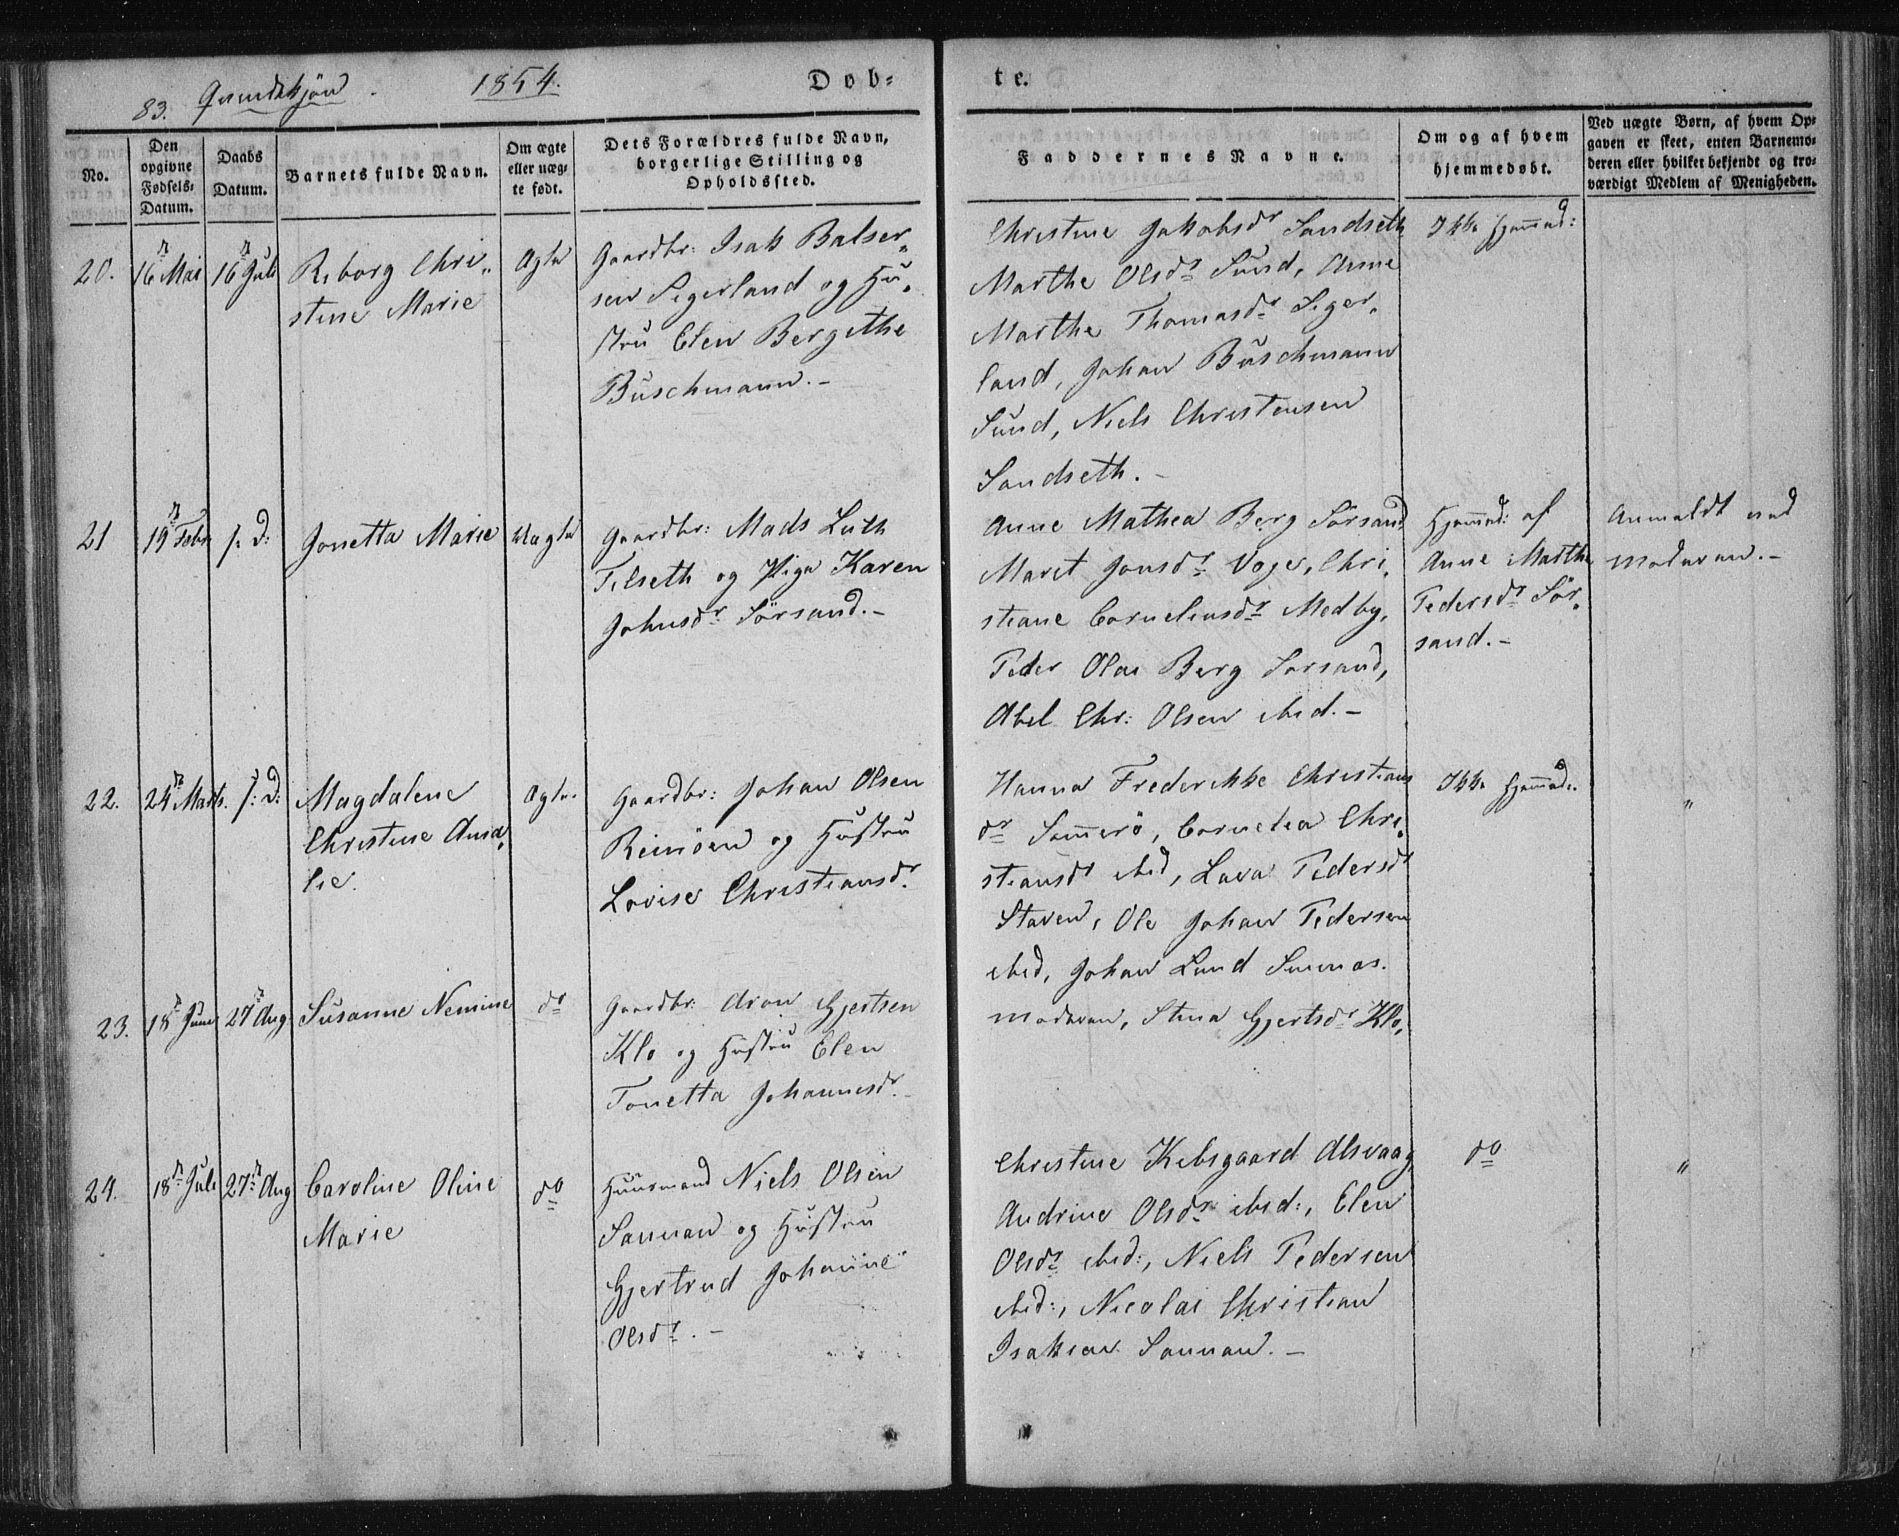 83. Qvindekjön. 1854. Dob-
te.
No.
Den opgivne Fødsels-Datum.
Daabs Datum.
Barnets fulde Navn.
Om ægte eller uæg-te født.
Dets Forældres fulde Navn, borgerlige Stilling og Opholdssted.
Faddernes Navne.
Om og af hvem hjemmedøbt.
Ved uægte Børn, af hvem Op-gaven er skeet, enten Barnemo-deren eller hvilket bekjendt og tro-værdigt Medlem af Menigheden.
20.
16 Mai
16 Juli
Riborg Chri-
stine Marie
Ægte
Gaardbr: Isak Balser-
sen Segerland og Hu-
stru Elen Bergithe
Buschmann.-
Christine Jakobsdr Sandseth
Marthe Olsdr Sund, Anne
Marthe Thomasdr Seger-
land, Johan Buschmann
Sund, Niels Christensen
Sandseth.-
Ikke Hjemmed:
21
19 Febr.
s: D:
Jonetta Marie
Uægte
Gaardbr: Mads Luth
Tilseth og Pige Karen
Johnsdr Sörsand.-
Anne Mathea Berg Sörsand
Marit Jonsdr Voge, Chri-
stiane Corneliusdr Medby,
Peder Olai Berg Sorsand,
Abel Chr: Olsen ibid.-
Hjemmed: af
Anne Marthe
Pedersdr Sör-
sand.-
Anmeldt ved
Moderen.-
22.
24 Marts.
s: D:
Magdalene
Christine Ama-
lie.
Ægte.
Gaardbr: Johan Olsen
Reinöen og Hustru
Lovise Christiansdr.
Hanna Frederikke Christians
dr Sommerö, Cornelia Chri-
stiansdr ibid, Lava Pedersdr
Staven, Ole Johan Pedersen
ibid, Johan Lund
Ikke Hjemmed:
"
23.
18 Juni
27 Aug
Susanne Nemine
do
Gaardbr: Aron Gjertsen
Klo og Hustru Elen
Tonetta Johannesdr.
Moderen, Stina Gjertsdr Klo,
24.
18 Juli
27 Aug
Caroline Oline
Marie
do
Huusmand Niels Olsen
Sannan og Hustru
Gjertrud Johanne
Olsdr.-
Christine Kebsgaard Alsvaag
Andrine Olsdr ibid:, Elen
Olsdr ibid:, Niels Pedersen
ibid:, Nicolai Christian
Isaksen Sannan.-
do
"